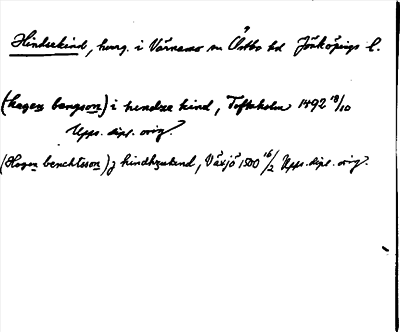 Hinderkind, herrg. i Värnamo sn Östbo hd Jönköpings l.
(hagen bengson) i hendze kind, Toftaholm 1492 18/10
Upps. dipl. orig.
(Hagen benchtsson) j hindhzakind, Växjö 1500 16/2 Upps. dipl. orig.